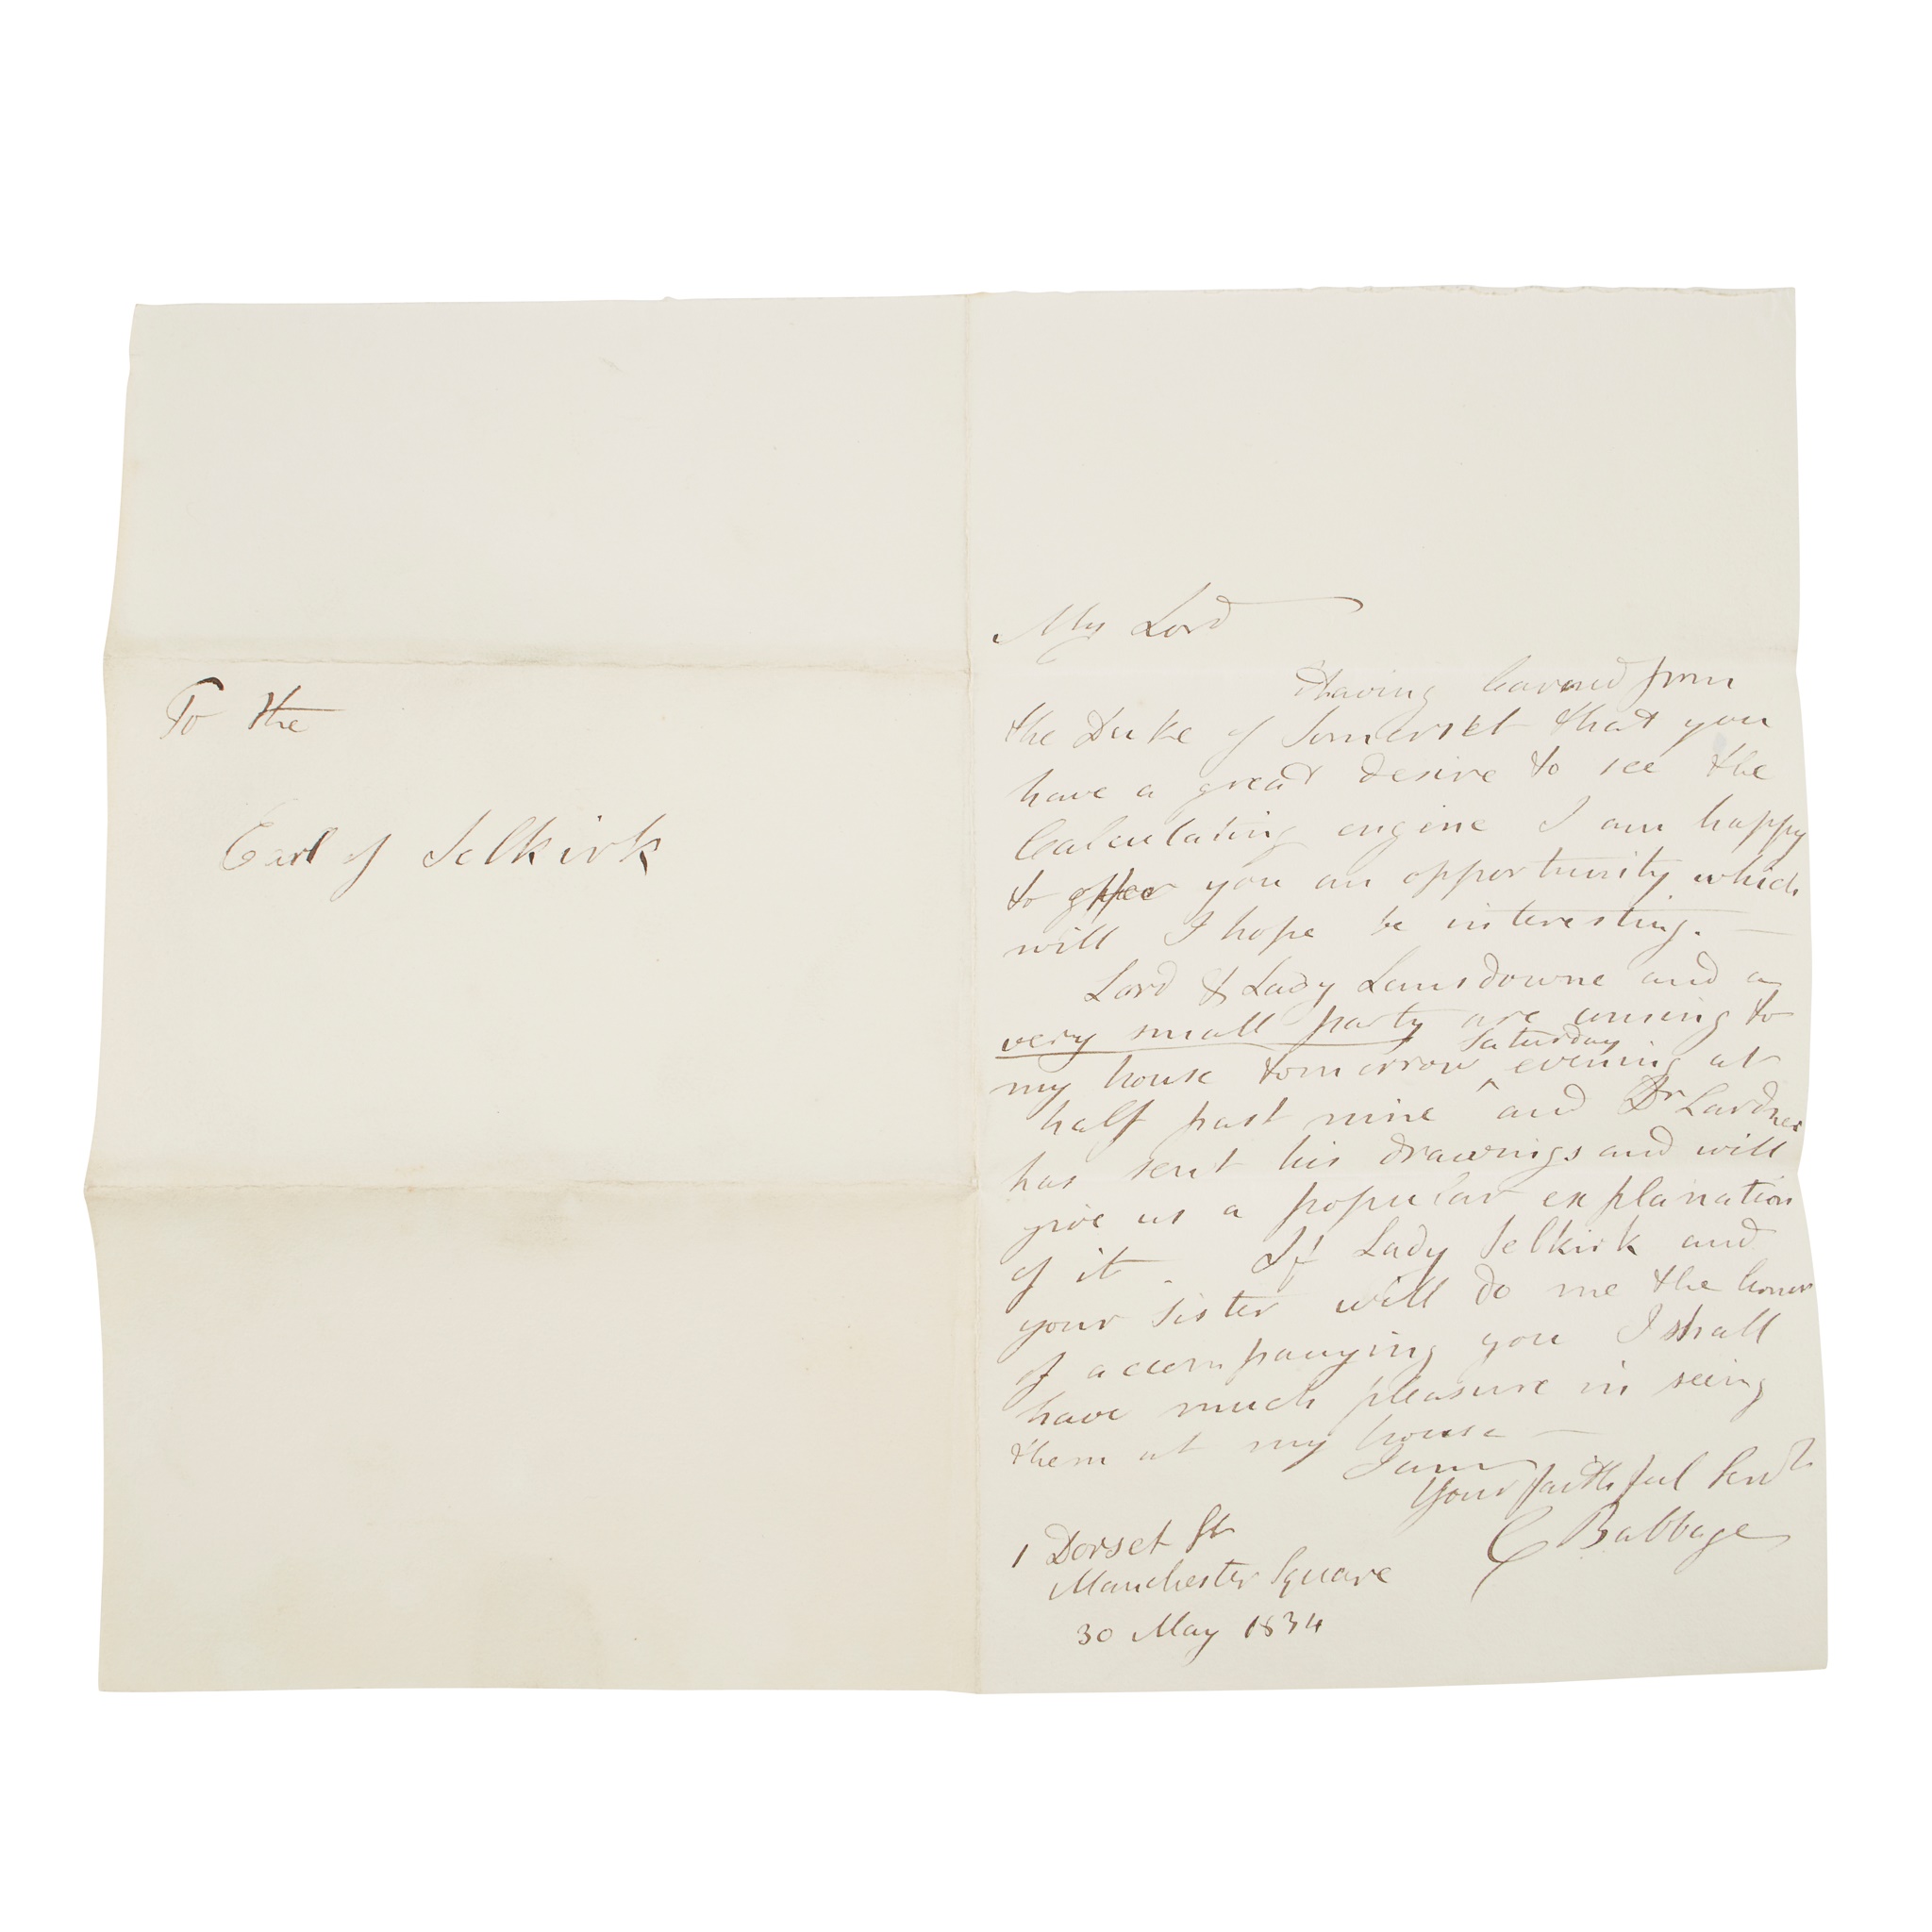 To the
Earl of Selkirk
My Lord
Having learned from
the Duke of Somerset that you
have a great desire to see the
Calculating engine I am happy
to offer you an opportunity which
will I hope be interesting. —
Lord & Lady Lansdowne and a
very small party are coming to
my house tomorrow ^ Saturday evening at
half past nine and Dr Lardner
has sent his drawings and will
give us a popular explanation
of it. If Lady Selkirk and
your sister will do me the honor
of accompanying you I shall
have much pleasure in seeing
them at my house —
I am
Your faithful Servt
C Babbage
1 Dorset St
Manchester Square
30 May 1834